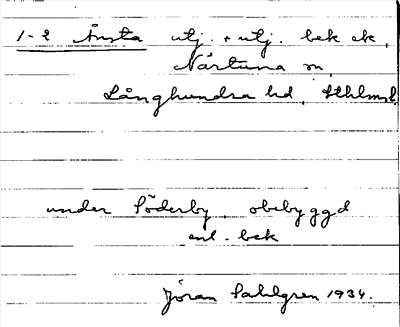 1-2 Ånsta utj. + utj. bek ek,
Närtuna sn,
Långhundra hd, Sthlms l.
under Söderby, obebyggd
enl. bek
Jöran Sahlgren 1934.